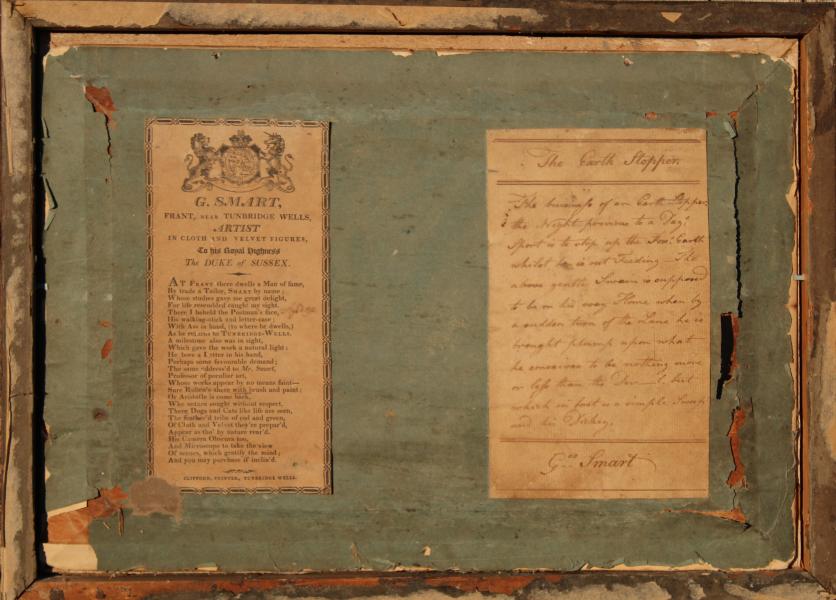 G. SMART,
FRANT, NEAR TUNBRIDGE WELLS,
ARTIST
IN CLOTH AND VELVET FIGURES,
To his Royal Highness
The DUKE of SUSSEX.
AT FRANT there dwells a Man of fame,
By trade a Tailor, SMART by name;
Whose studies gave me great delight,
For life resembled caught my sight.
There I beheld the Postman's face,
His walking-stick and letter-case;
With Ass in hand, (to where he dwells,)
As he relates to TUNBRIDGE-WELLS.
A milestone also was in sight,
Which gave the work a natural light:
He bore a Letter in his hand,
Perhaps some favourable demand;
The same address'd to Mr. Smart,
Professor of peculiar art,
Whose works appear by no means faint—
Sure Ruben's there with brush and paint:
Or Aristotle is come back,
Who nature sought without respect.
There Dogs and Cats like life are seen,
The feather'd tribe of red and green,
Of Cloth and Velvet they're prepar'd,
Appear as tho' by nature rear'd.
His Camera Obscura too,
And Microscope to take the view
Of scenes, which gratify the mind;
And you may purchase if inclin'd.
CLIFFORD, PRINTER, TUNBRIDGE WELLS.
The Earth Stopper.
The business of an Earth Stopper
the Night previous to a Day's
Sport is to stop up the Fox's Earth
whilst he is out Feeding — The
above gentle Swain is supposed
to be on his way Home when by
a sudden turn of the Lane he is
brought plump upon what
he conceives to be nothing more
or less than the Devil, but
which in fact is a simple Sweep
and his Dickey.
Geo Smart